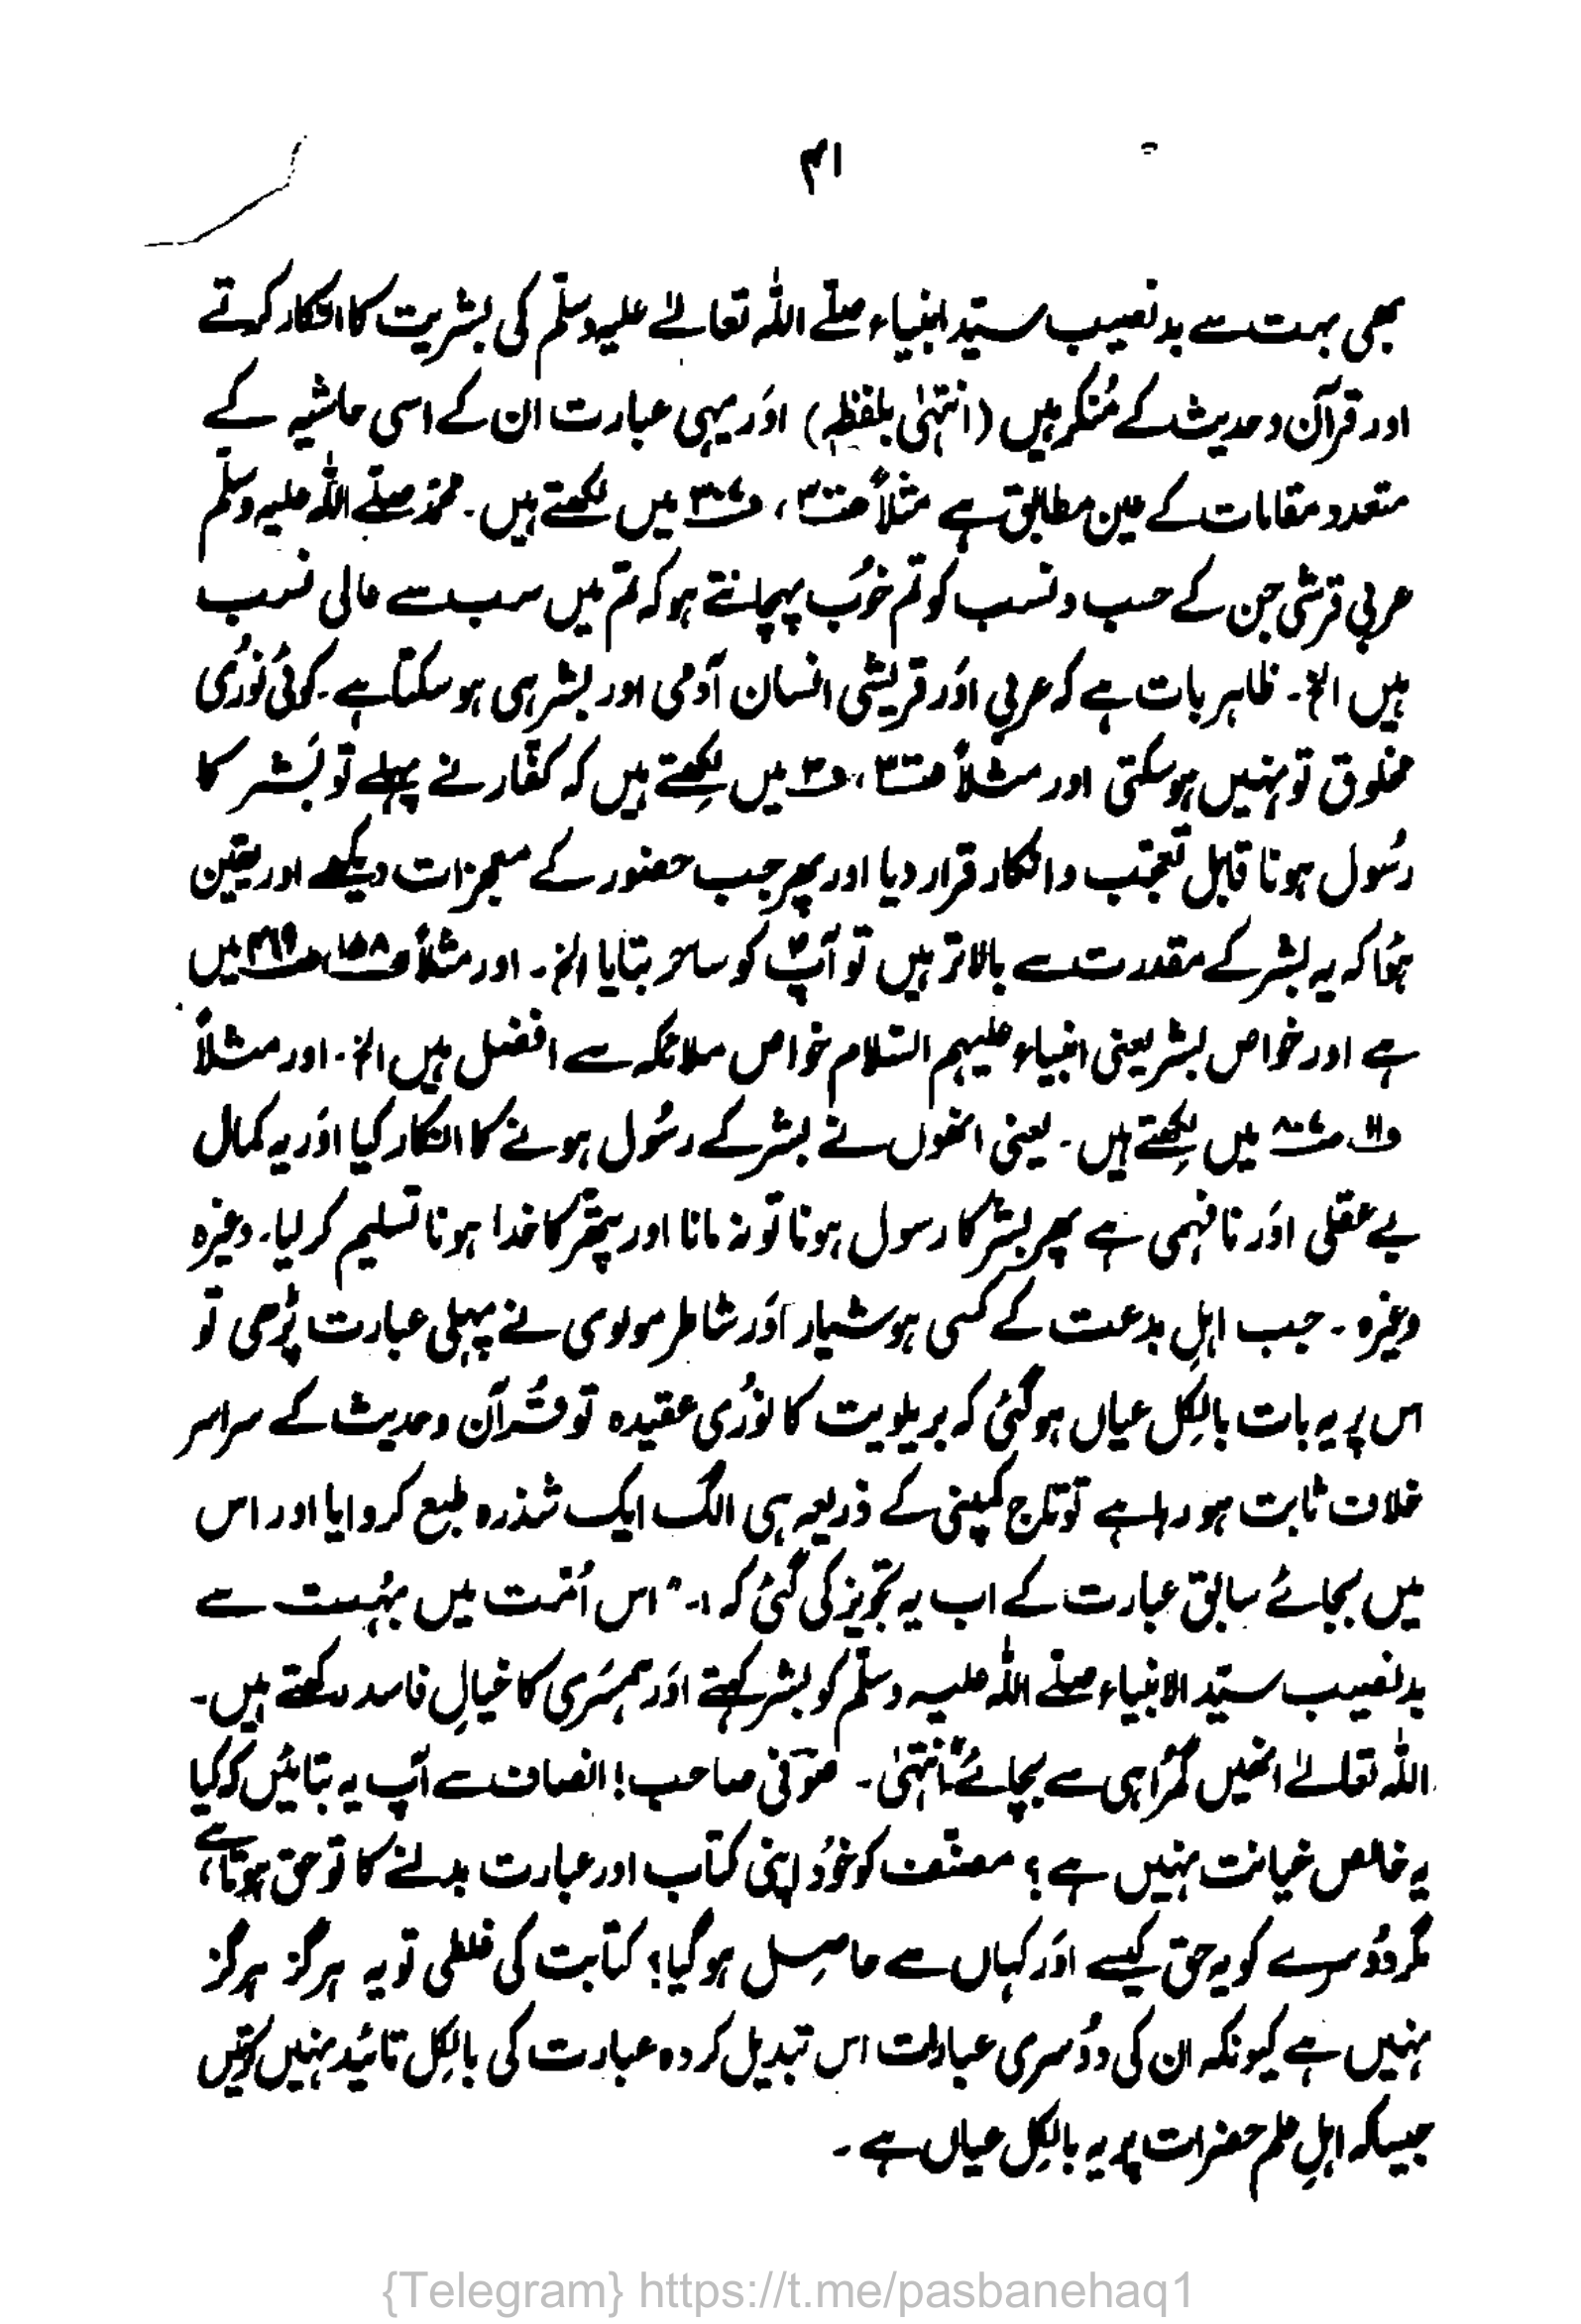 ۴۱
بھی بہت سے بدنصیب سیّد انبیاء صلّے اللہ تعالےٰ علیہ وسلّم کی بشریت کا انکار کرتے
اور قرآن و حدیث کے مُنکر ہیں (انتہیٰ بلفظہٖ) اوَر یہی عبارت ان کے اسی حاشیہ کے
متعدد مقامات کے عین مطابق ہے مثلاً میں لکھتے ہیں۔ محمّد صلّے اللہ علیہ وسلّم
عربی قرشی جن کے حسب و نسب کو تم خوُب پہچانتے ہو کہ تم میں سب سے عالی نسب
ہیں الخ۔ ظاہر بات ہے کہ عربی اوَر قریشی انسان آدمی اور بشر ہی ہو سکتا ہے۔ کوئی نوُری
مخلوق تو نہیں ہو سکتی اور مثلاً میں لکھتے ہیں کہ کفّار نے پہلے تو بَشر کا
رسُول ہونا قابل تعجّب و انکار قرار دیا اور پھر جب حضور کے معجزات دیکھے اور یقین
ہُوا کہ یہ بشر کے مقدرت سے بالاتر ہیں تو آپؐ کو ساحر بتایا الخ۔ اور مثلاً میں
ہے اور خواص بشر یعنی انبیاء علیہم السّلام خواص ملائکہ سے افضل ہیں الخ۔ اور مثلاً
میں لکھتے ہیں۔ یعنی انھوں نے بشر کے رسُول ہونے کا انکار کیا اوَر یہ کمال
بے عقلی اوَر نافہمی ہے پھر بشر کا رسول ہونا تو نہ مانا اور پتھّر کا خدا ہونا تسلیم کر لیا۔ وغیرہ
وغیرہ۔ جب اہلِ بدعت کے کسی ہوشیار اوَر شاطر مولوی نے پہلی عبارت پڑھی تو
اس پر یہ بات بالکِل عیاں ہو گئی کہ بریلویت کا نوُری عقیدہ تو قُرآن و حدیث کے سراسر
خلاف ثابت ہو رہا ہے تو تاج کمپنی کے ذریعہ ہی الگ ایک شذرہ طبع کروایا اور اس
میں بجائے سابق عبارت کے اب یہ تجویز کی گئی کہ :۔ "اس اُمّت میں بہُت سے
بدنصیب سیّد الانبیاء صلّے اللہ علیہ وسلّم کو بشر کہتے اوَر ہمسَری کا خیالِ فاسد رکھتے ہیں۔
اللہ تعالےٰ انھیں گمُراہی سے بچائے" انتہیٰ۔ صوُفی صاحب! انصاف سے آپ یہ بتائیں کہ کیا
یہ خالص خیانت نہیں ہے؟ مصنّف کو خوُد اپنی کتاب اور عبارت بدلنے کا تو حق ہوتا ہے،
مگر دوُسرے کو یہ حق کیسے اوَر کہاں سے حاصِل ہو گیا؟ کتابت کی غلطی تو یہ ہرگز ہرگز
نہیں ہے کیونکہ ان کی دوُسری عبارات اس تبدیل کردہ عبارت کی بالکِل تائید نہیں کرتیں
جیسا کہ اہلِ علم حضرات پر یہ بالکِل عیاں ہے۔
{Telegram} https://t.me/pasbanehaq1